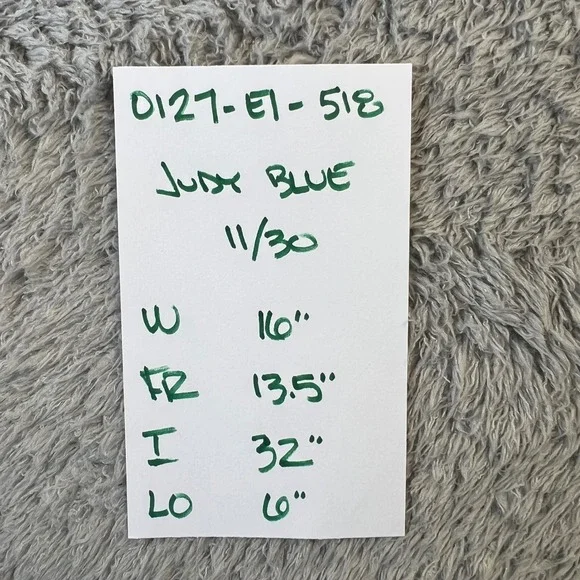 0127-E1-518
JUDY BLUE
11/30
W 16"
FR 13.5"
I 32"
LO 6"